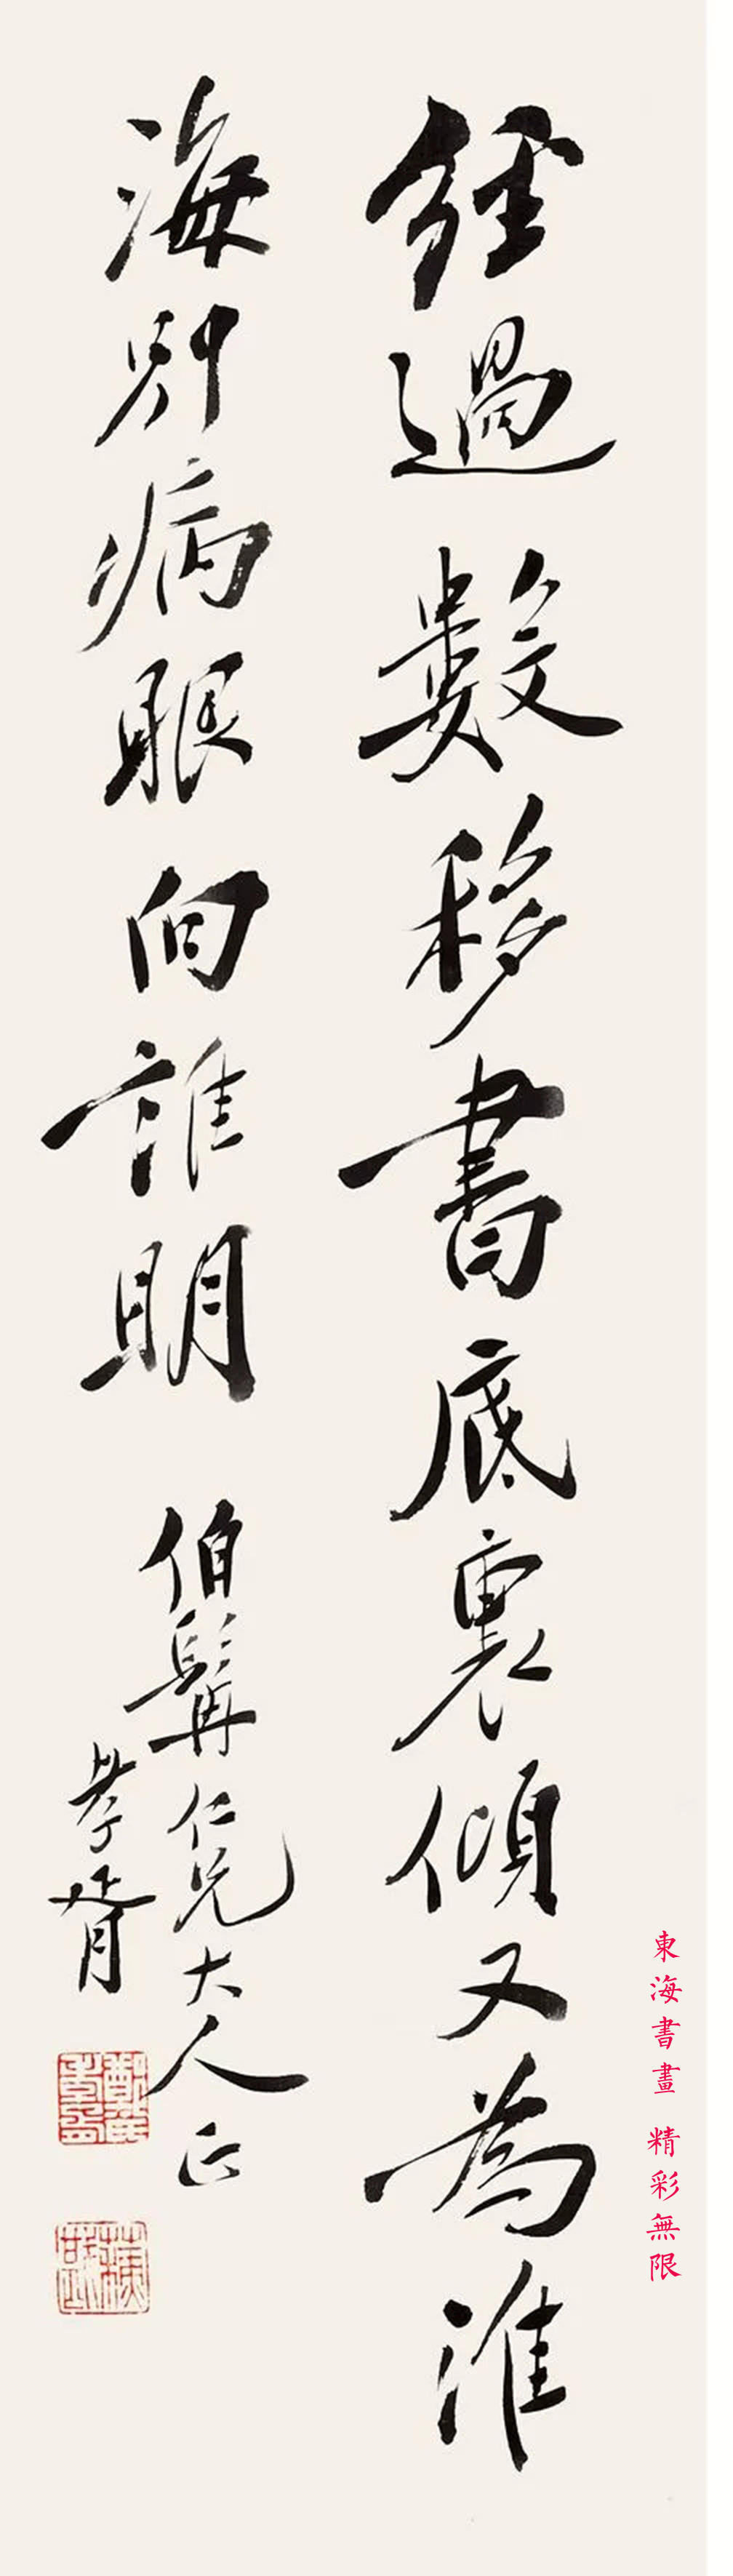 經過數移書底裏傾又為淮
海別病眼向誰明
伯髯仁兄大人正
孝胥
東海書畫 精彩無限